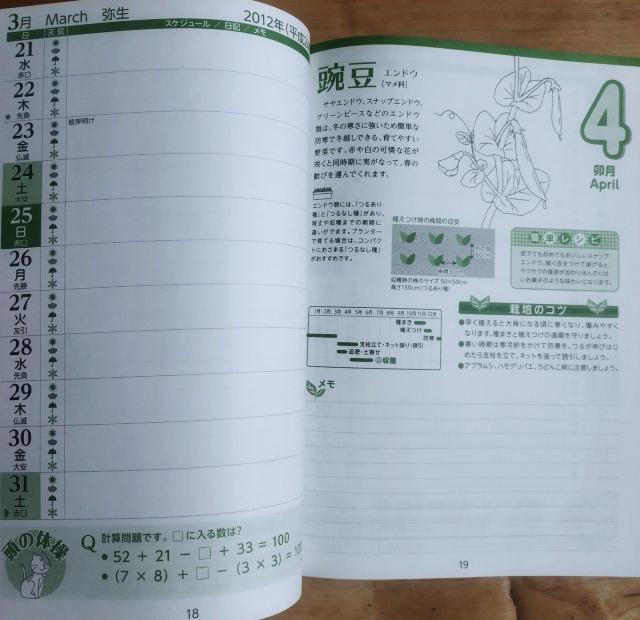 3月 March 弥生
2012年(平成2
日 天気 スケジュール／日記／メモ
21
水
赤口
22
木
★ 先負
23 彼岸明け
金
仏滅
24
土
大安
25
日
赤口
26
月
先勝
27
火
友引
28
水
先負
29
木
仏滅
30
金
大安
31
土
赤口
頭の体操
Q 計算問題です。□に入る数は?
• 52 + 21 − □ + 33 = 100
• (7 × 8) + □ − (3 × 3) = 100
18
豌豆 エンドウ
[マメ科]
サヤエンドウ、スナップエンドウ、
グリーンピースなどのエンドウ
類は、冬の寒さに強いため簡単な
防寒で冬越しできる、育てやすい
野菜です。赤や白の可憐な花が
咲くと同時期に実がなって、春の
歓びを運んでくれます。
4
卯月
April
エンドウ類には、「つるあり
種」と「つるなし種」があり、
背丈や収穫までの期間に
違いがでます。プランター
で育てる場合は、コンパク
トにおさまる「つるなし種」
がおすすめです。
植えつけ時の株間の目安
株間30cm
収穫時の株のサイズ 50×50cm
高さ150cm(つるあり種)
簡単レシピ
茹でても炒めてもおいしいスナップ
エンドウ。軽く衣をつけて揚げると、
サクサクの食感が加わりほんのり甘
いお菓子のような味わいになります。
1月 2月 3月 4月 5月 6月 7月 8月 9月 10月 11月 12月
種まき
植えつけ
防寒
支柱立て・ネット張り・誘引
追肥・土寄せ
収穫
栽培のコツ
●早く植えると大株になる頃に寒くなり、傷みやすく
なります。種まきと植えつけの適期を守りましょう。
●寒い時期は寒冷紗をかけて防寒を。つるが伸びはじ
めたら支柱を立て、ネットを張って誘引しましょう。
●アブラムシ、ハモグリバエ、うどんこ病に注意しましょう。
メモ
19